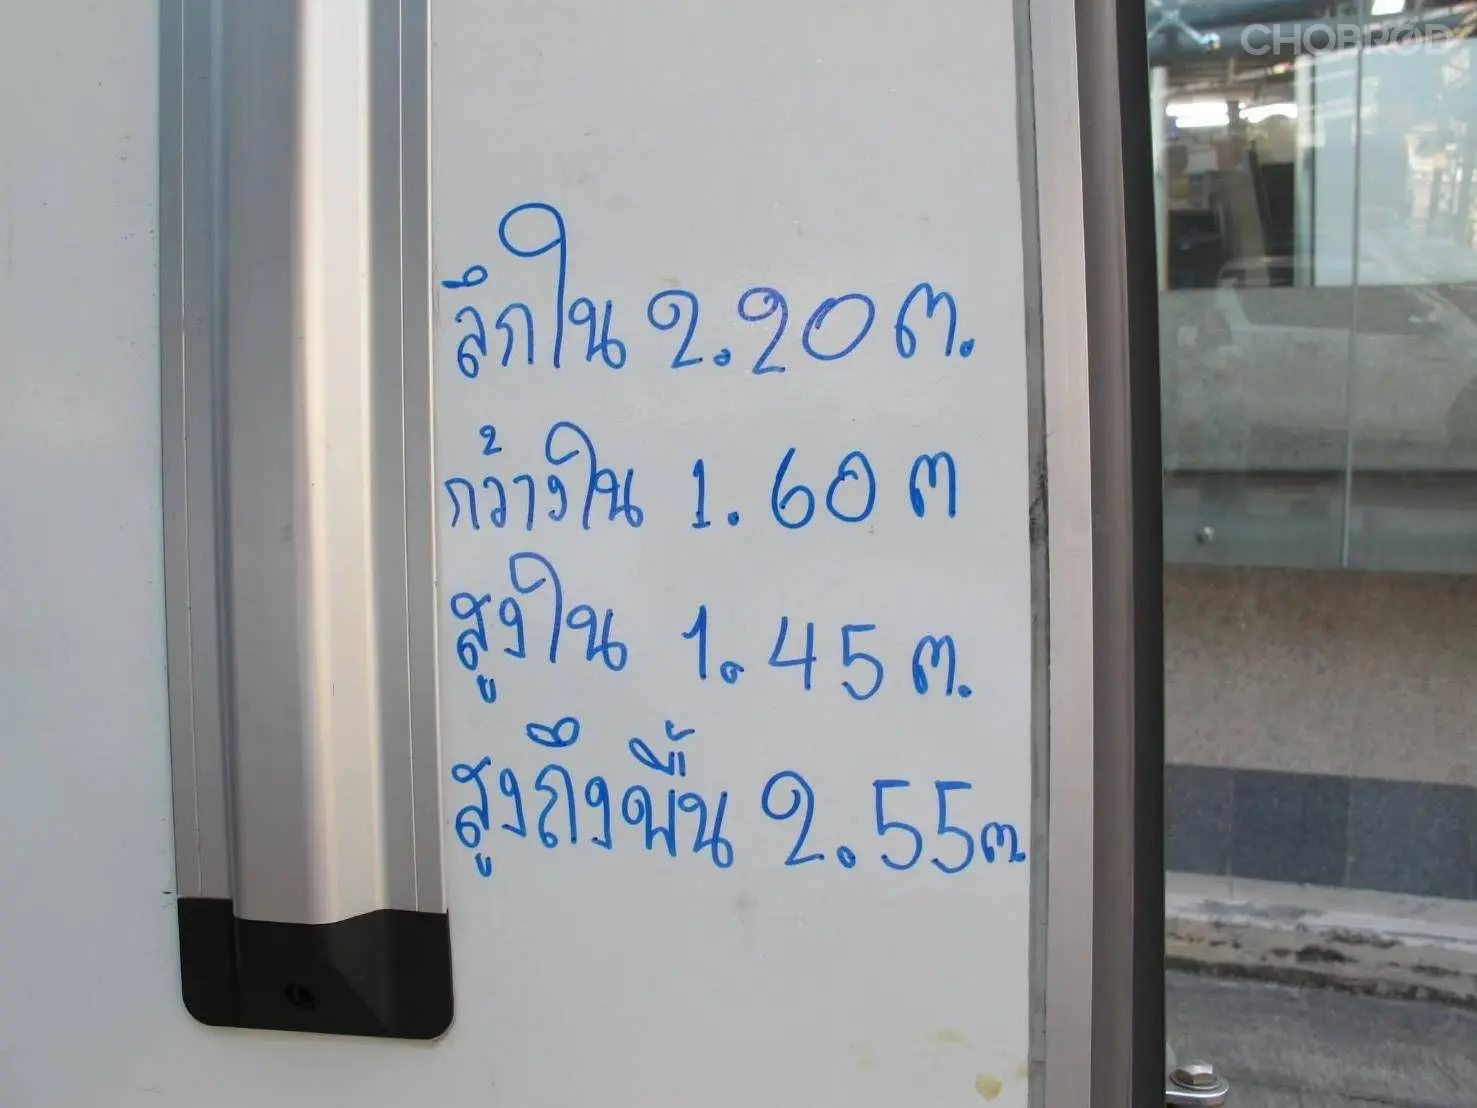 CHOBROD
ลึกใน 2.20 ต.
กว้างใน 1.60 ต
สูงใน 1.45 ต.
สูงถึงพื้น 2.55 ต.